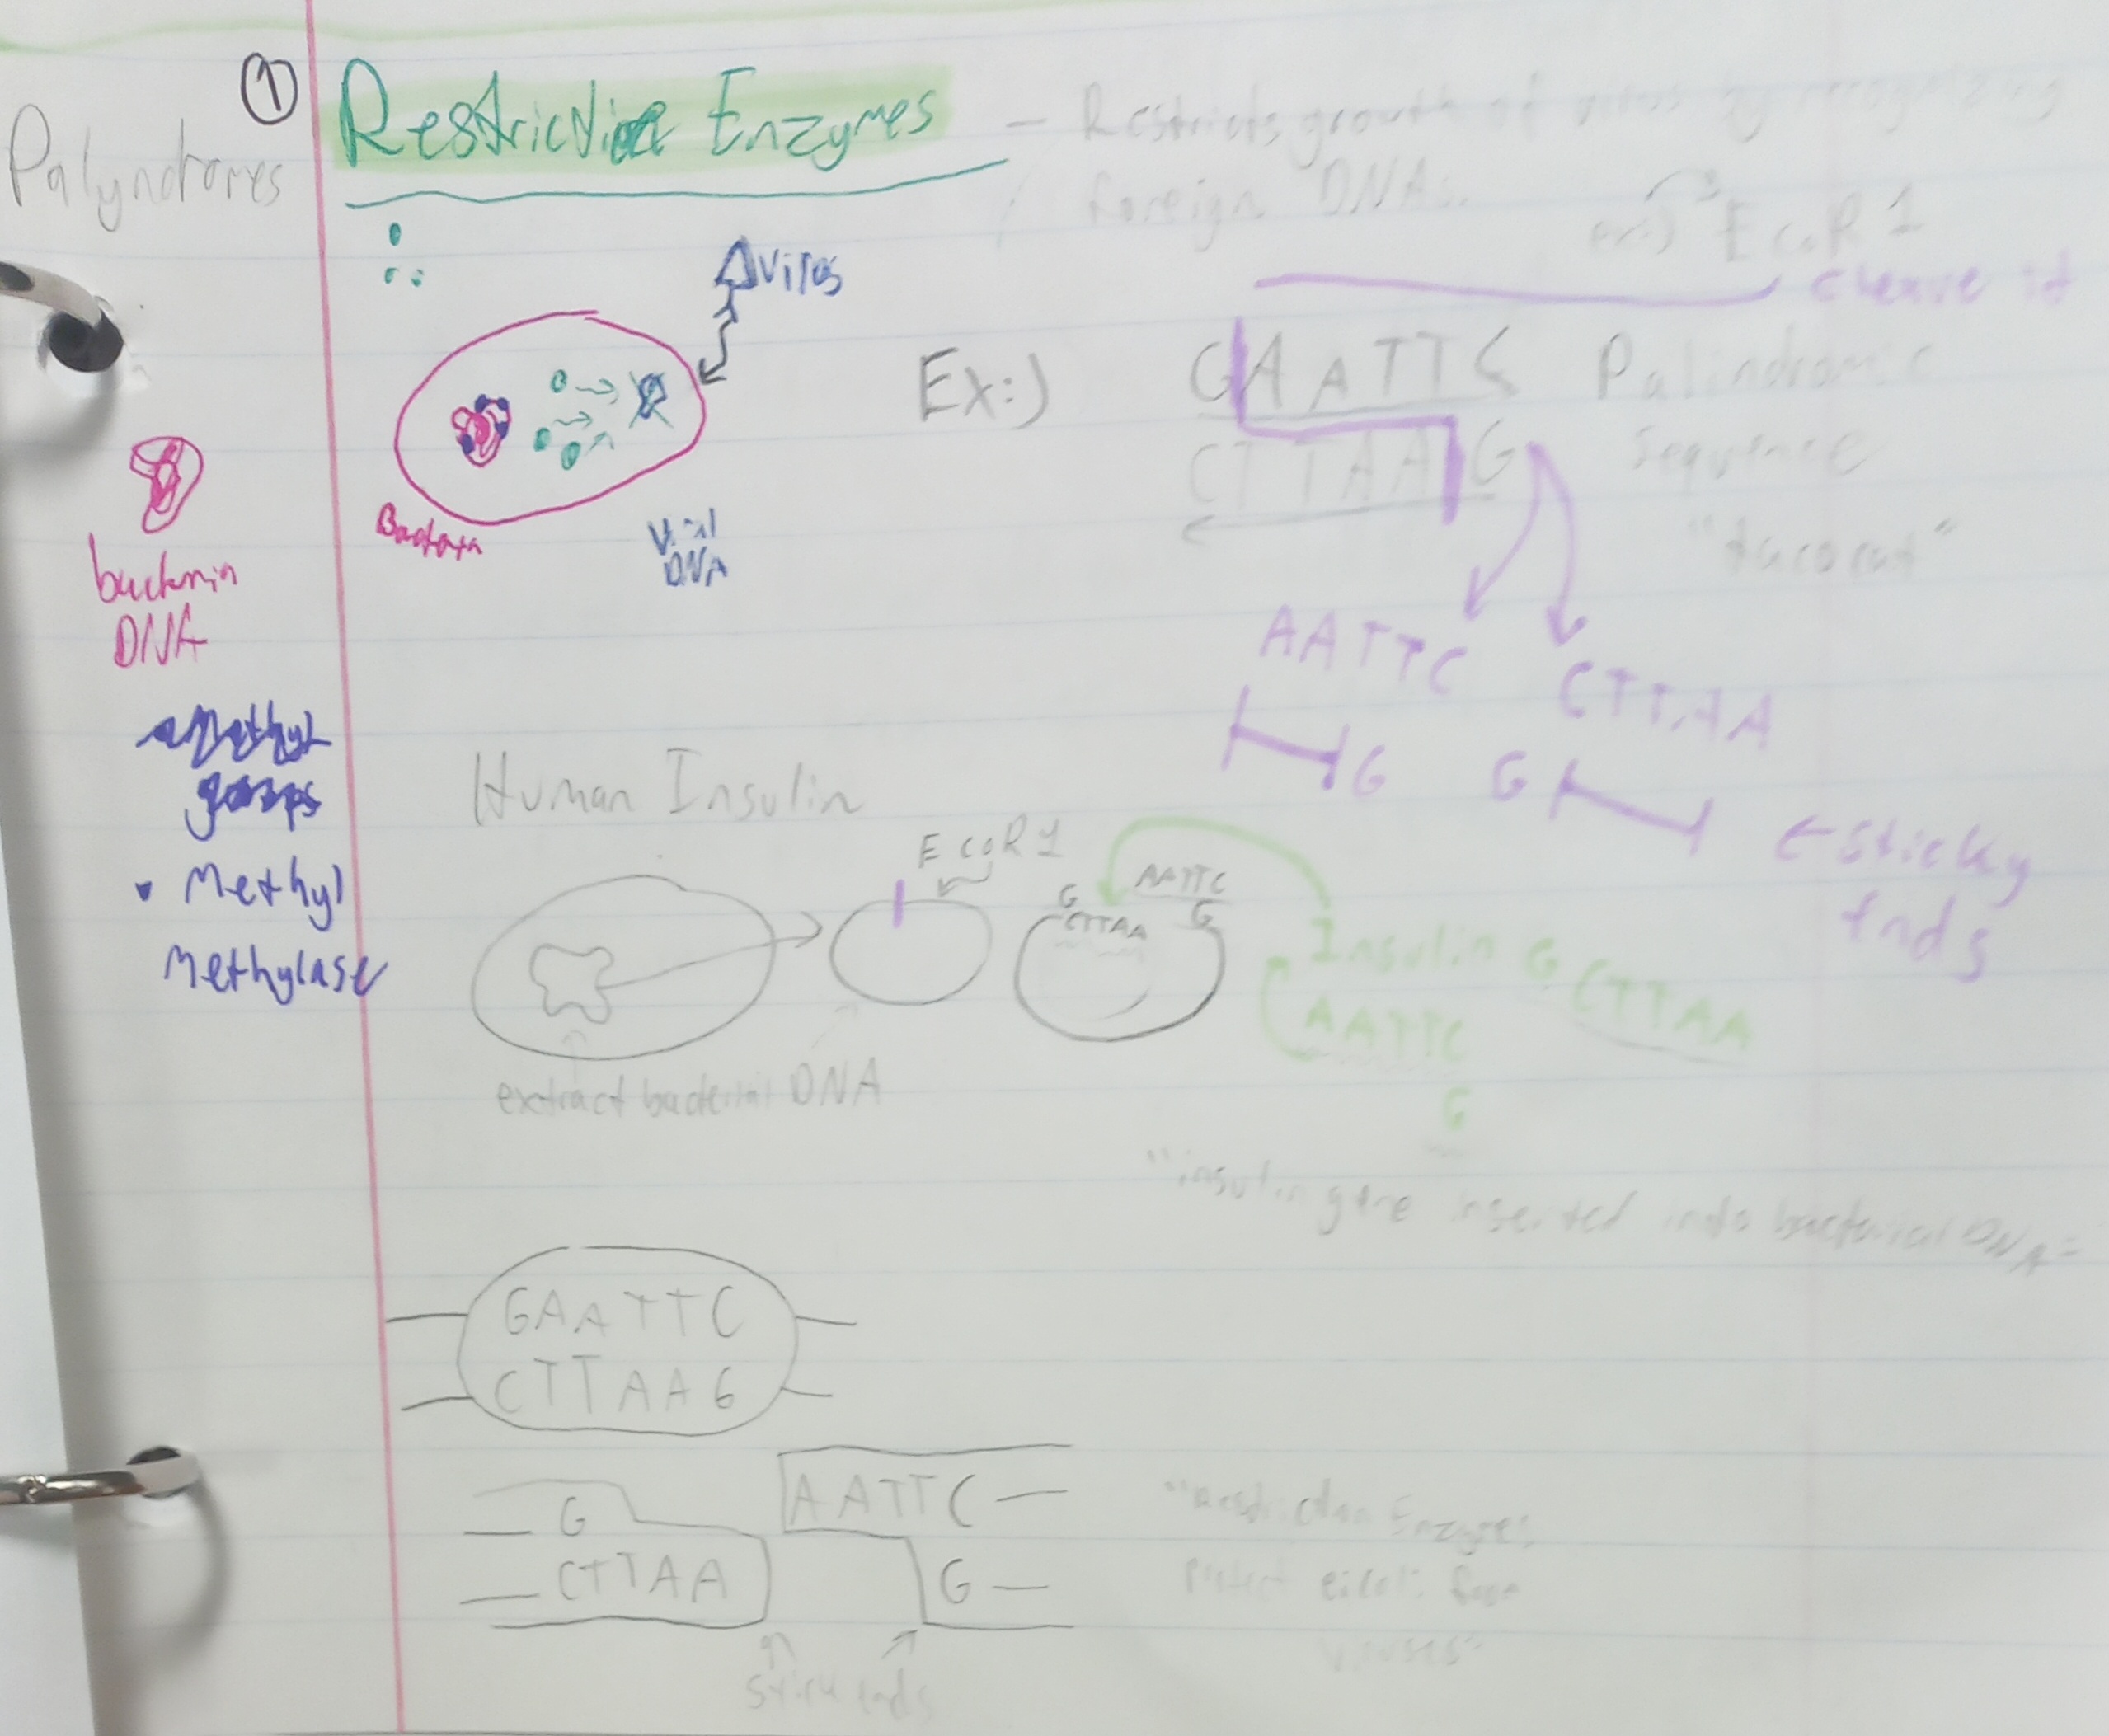 ①
Palyndromes
Restriction Enzymes
- Restricts growth of virus by recognizing
foreign DNA.
ex:) EcoR1
cleave it
Virus
Bacteria
Viral
DNA
bacteria
DNA
methyl
groups
• Methyl
Methylase
Ex:)
GAATTC
CTTAAG
Palindromic
Sequence
"taco cat"
AATTC
G
CTTAA
G
← Sticky
Ends
Human Insulin
EcoR1
G
CTTAA
AATTC
G
Insulin G
CTTAA
AATTC
G
extract bacterial DNA
"insulin gene inserted into bacterial DNA"
GAATTC
CTTAAG
G
CTTAA
AATTC
G
"Restriction Enzymes
Protect e.coli from
viruses"